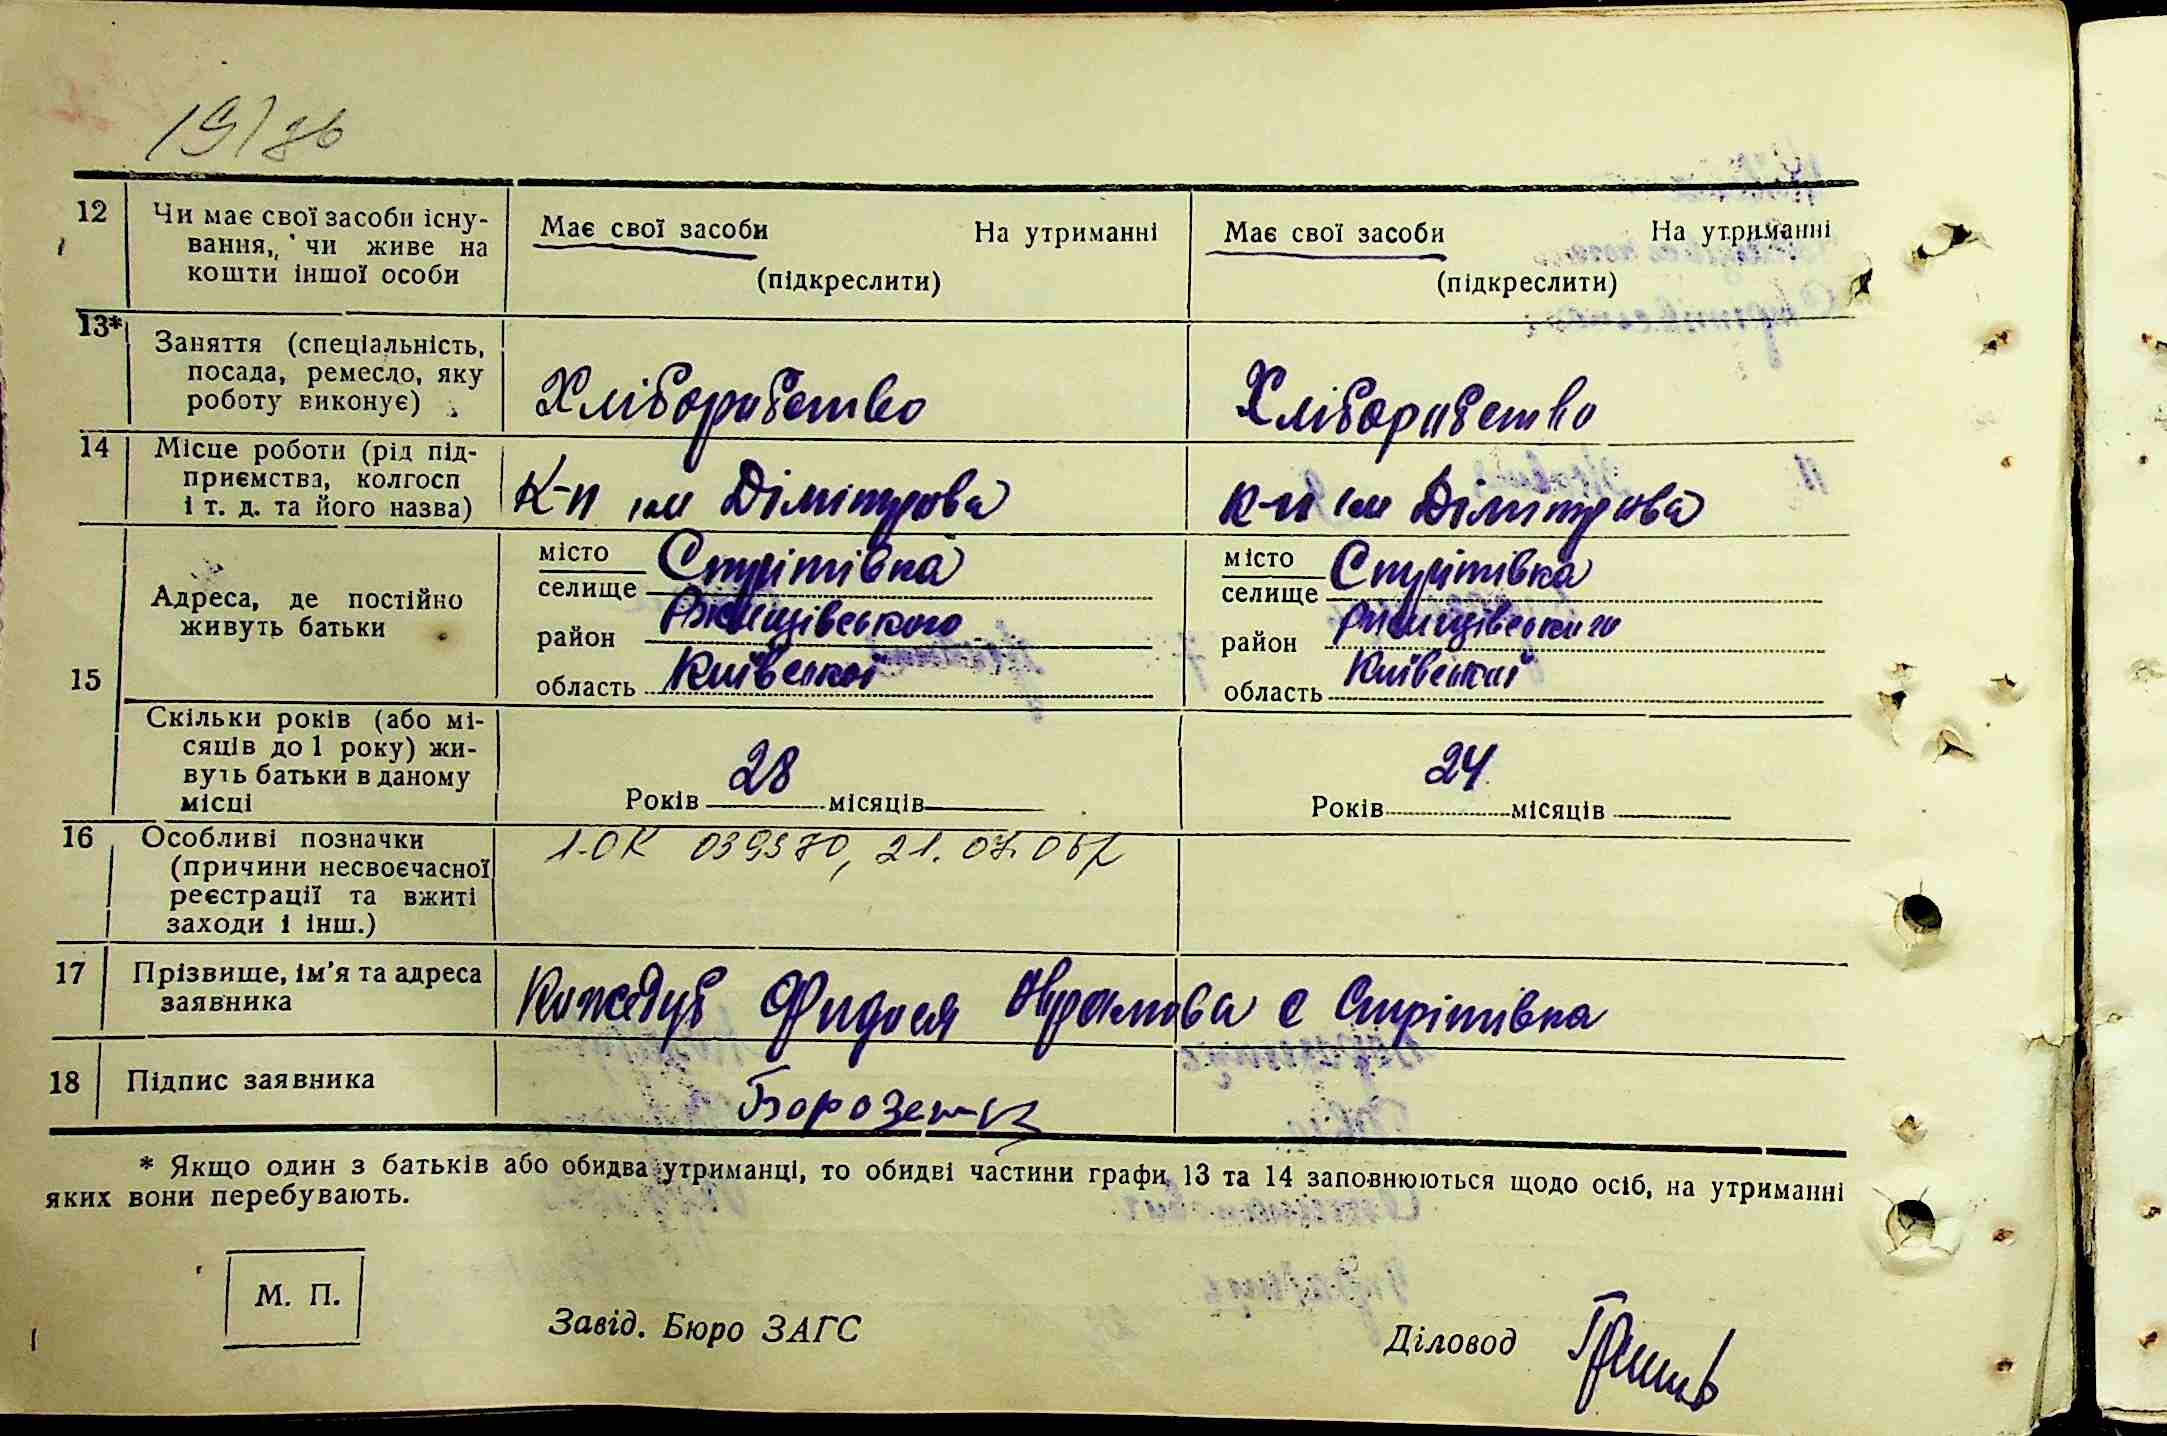 19/зв
12 Чи має свої засоби існу-
вання, чи живе на
кошти іншої особи
Має свої засоби На утриманні
(підкреслити)
Має свої засоби На утриманні
(підкреслити)
13* Заняття (спеціальність,
посада, ремесло, яку
роботу виконує)
Хліборобство
Хліборобство
14 Місце роботи (рід під-
приємства, колгосп
і т. д. та його назва)
К-п ім Дімітрова
к-п ім Дімітрова
15
Адреса, де постійно
живуть батьки
місто
селище Стрітівка
район Ржищівського
область Київської
місто
селище Стрітівка
район Ржищівського
область Київської
Скільки років (або мі-
сяців до 1 року) жи-
вуть батьки в даному
місці
Років 28 місяців
Років 24 місяців
16 Особливі позначки
(причини несвоєчасної
реєстрації та вжиті
заходи і інш.)
1-ОК 039370, 21.07.06р
17 Прізвище, ім'я та адреса
заявника
Кожедуб с Стрітівка
18 Підпис заявника
* Якщо один з батьків або обидва утриманці, то обидві частини графи 13 та 14 заповнюються щодо осіб, на утриманні
яких вони перебувають.
М. П.
Завід. Бюро ЗАГС
Діловод